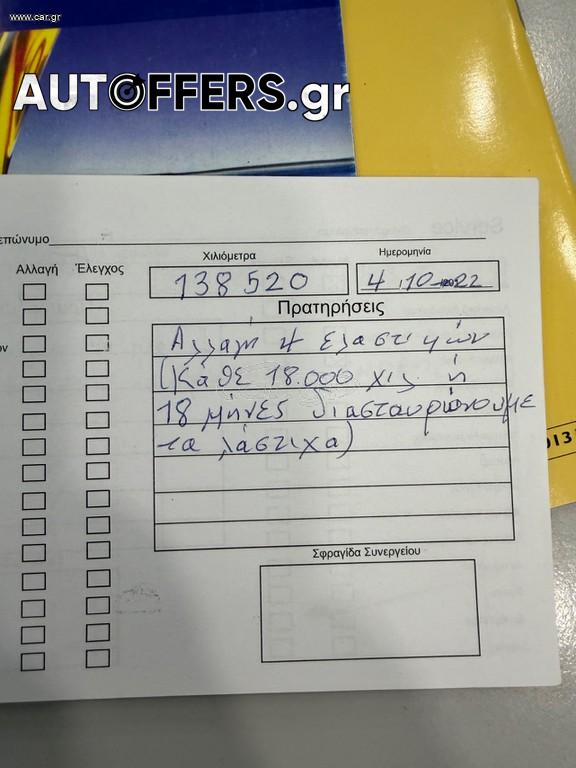 www.car.gr
AUTOFFERS.gr
επώνυμο
Αλλαγή Έλεγχος
Χιλιόμετρα
Ημερομηνία
138520
4.10-22
Πρατηρήσεις
Αλλαγή 4 ελαστικών
(Κάθε 18.000 χιλ ή
18 μήνες διασταυρώνουμε
τα λάστιχα)
Σφραγίδα Συνεργείου